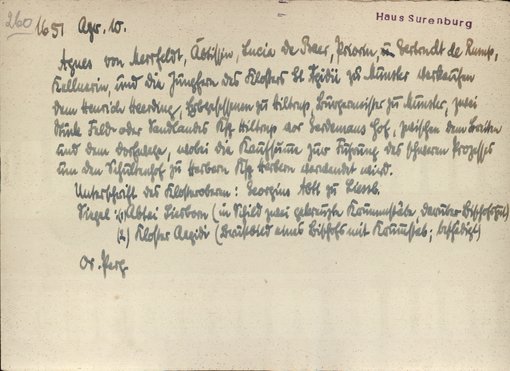 260
Haus Surenburg
1651 Apr. 10.
Agnes von Merrfeldt, Äbtissin, Lucia de Baer, Priorin u Gertrudt de Rump,
Kellnerin, und die Jungfern des Klosters St Egidii zu Münster verkaufen
dem Henrich Heerding, Erbgesessenen zu Hiltrup, Bürgermeister zu Münster, zwei
Stück Feld- oder Saadlandes Ksp Hiltrup vor Gerdemans Hof, zwischen dem Breiten
und dem, wobei die Kaufsumme zur Führung des schweren Prozesses
um den Schultenhof zu Herbern Ksp Herbern verwendet wird.
Unterschrift des Klosterobern: Georgius Abt zu Liesb.
Siegel: 1) Abtei Liesborn (in Schild zwei gekreuzte Krummstäbe, darüber Bischofshut)
(2) Kloster Aegidii (Brustbild eines Bischofs mit Krummstab; beschädigt)
Or. Perg.